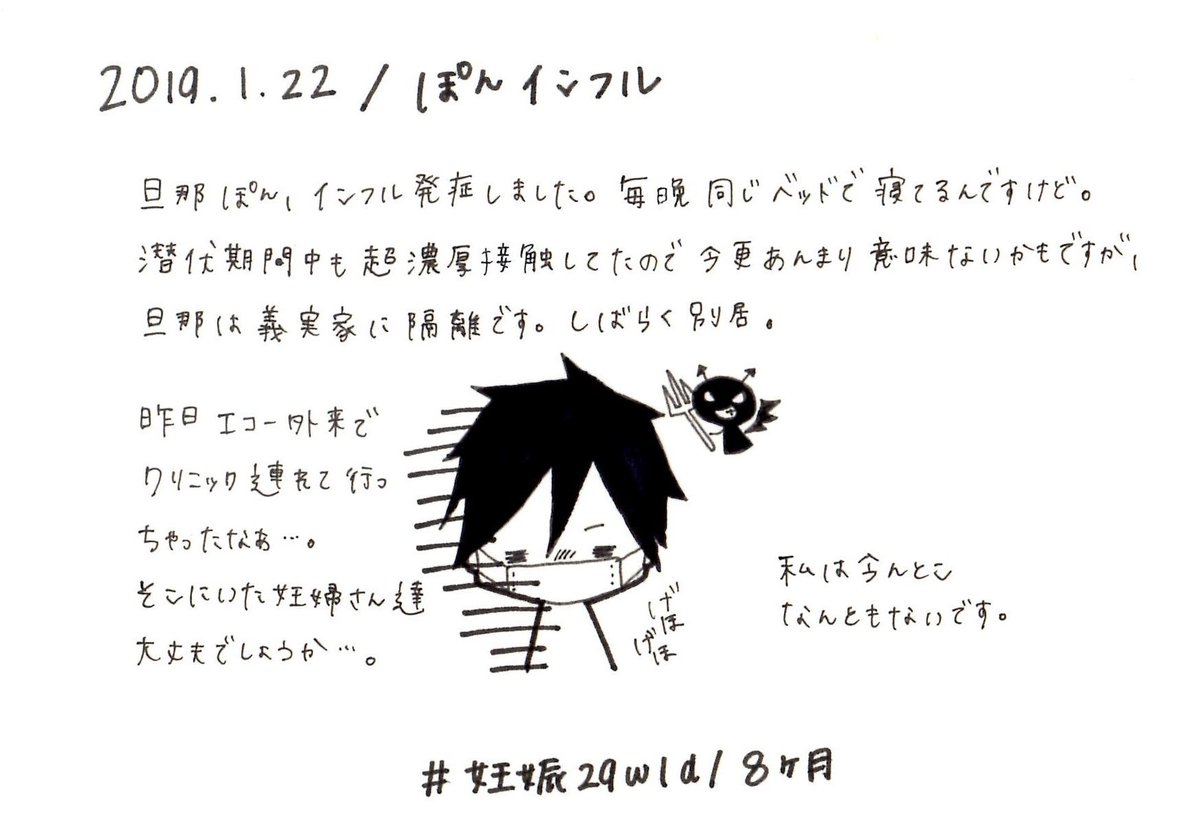 2019.1.22/ぽんインフル
旦那ぽん、インフル発症しました。毎晩同じベッドで寝てるんですけど。
潜伏期間中も超濃厚接触してたので今更あんまり意味ないかもですが、
旦那は義実家に隔離です。しばらく別居。
昨日エコー外来で
クリニック連れて行っ
ちゃったなぁ…。
そこにいた妊婦さん達
大丈夫でしょうか…。
げほ
げほ
私は今んとこ
なんともないです。
#妊娠29w1d/8ヶ月